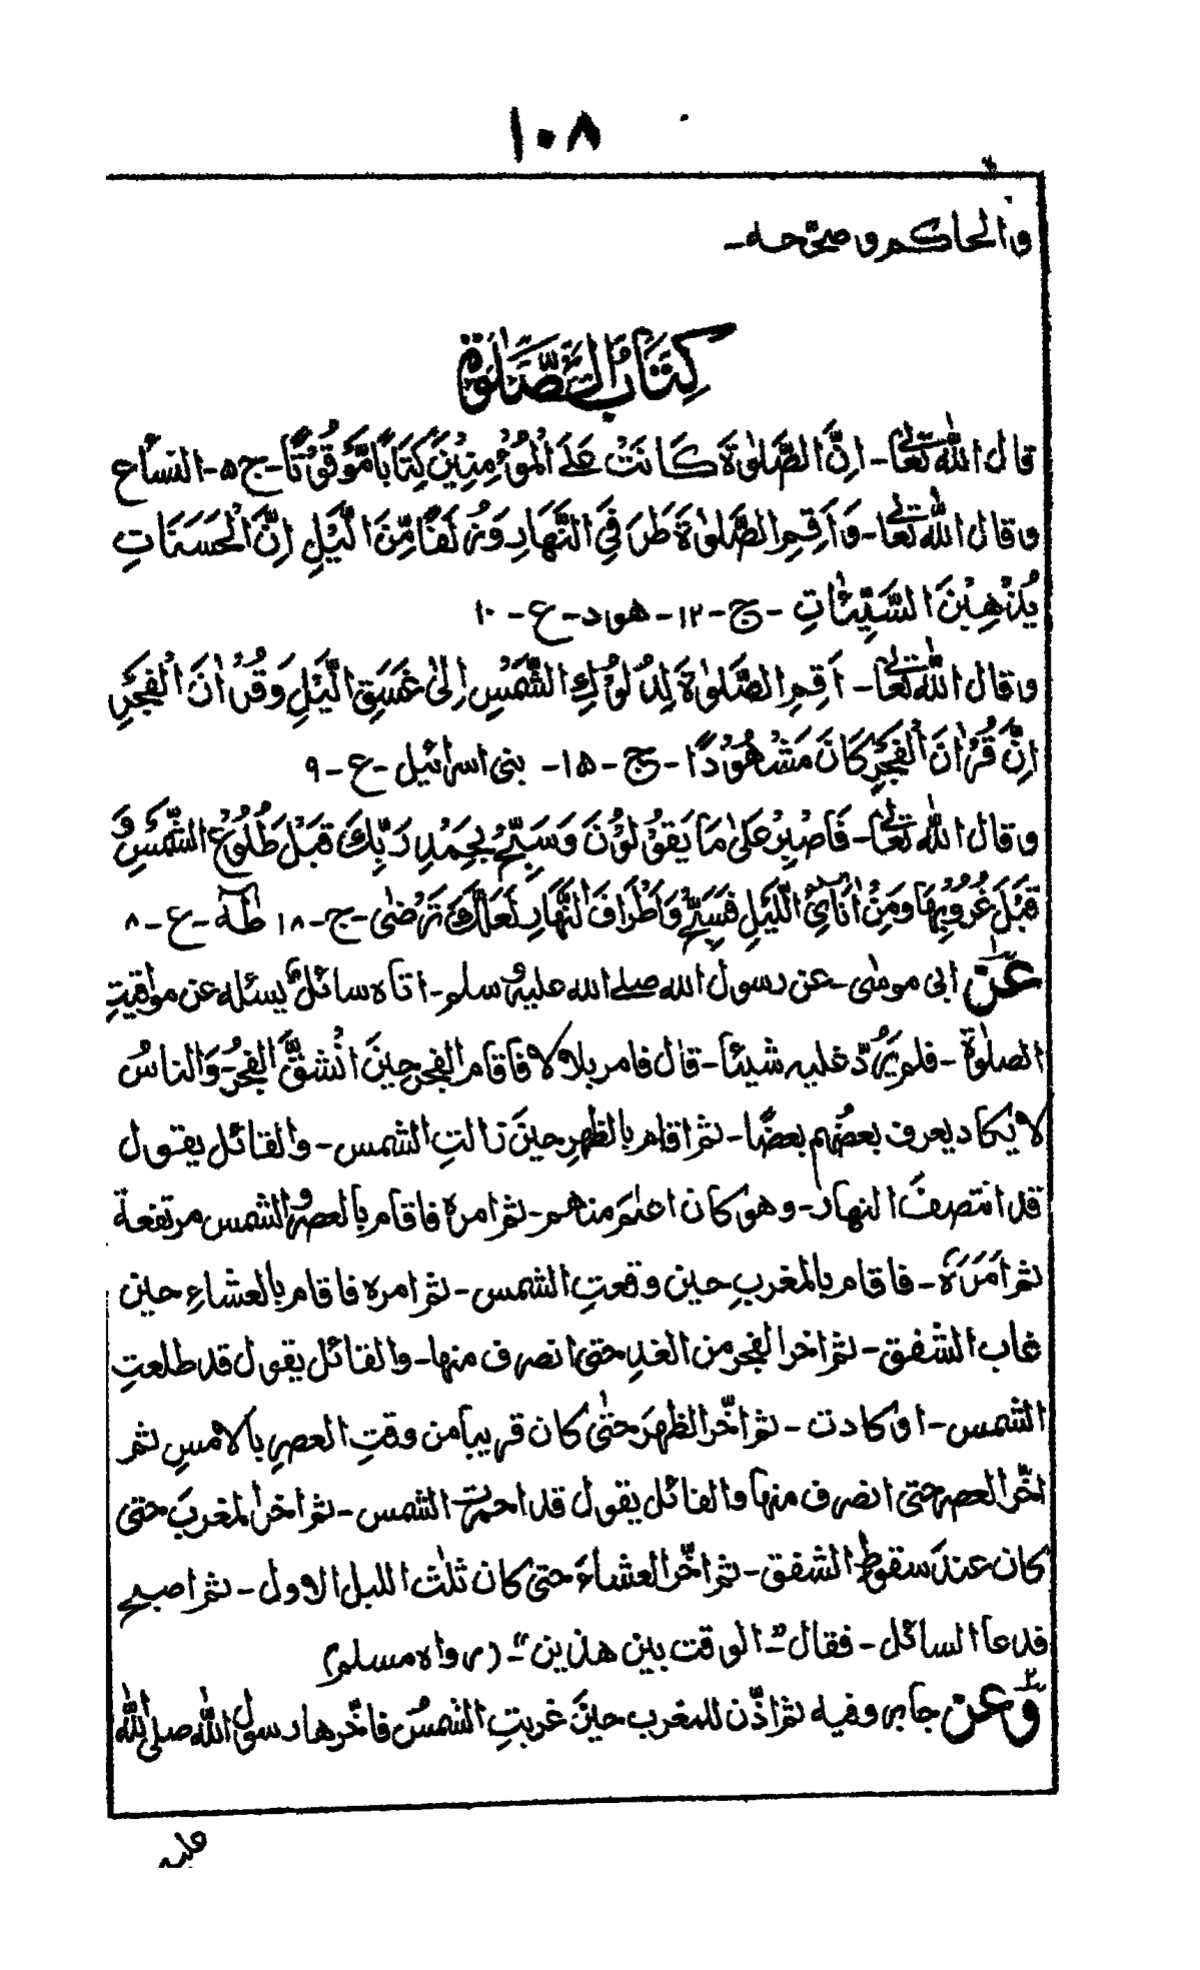 ١٠٨
والحاكم وصحّحه۔
كِتَابُ الصَّلٰوة
قال الله تعالىٰ۔ اِنَّ الصَّلٰوةَ كَانَتْ عَلَى الْمُؤْمِنِيْنَ كِتَابًا مَّوْقُوْتًا۔ ج ۵۔ النساء ع
وقال الله تعالىٰ۔ وَاَقِمِ الصَّلٰوةَ طَرَفَيِ النَّهَارِ وَزُلَفًا مِّنَ الَّيْلِ اِنَّ الْحَسَنَاتِ
يُذْهِبْنَ السَّيِّئَاتِ ۔ ج۔ ١٢۔ هود۔ ع۔ ١٠
وقال الله تعالىٰ۔ اَقِمِ الصَّلٰوةَ لِدُلُوْكِ الشَّمْسِ اِلىٰ غَسَقِ الَّيْلِ وَقُرْاٰنَ الْفَجْرِ
اِنَّ قُرْاٰنَ الْفَجْرِ كَانَ مَشْهُوْدًا۔ ج۔ ١۵۔ بنى اسرائيل۔ ع۔ ٩
وقال الله تعالىٰ۔ فَاصْبِرْ عَلىٰ مَا يَقُوْلُوْنَ وَسَبِّحْ بِحَمْدِ رَبِّكَ قَبْلَ طُلُوْعِ الشَّمْسِ وَ
قَبْلَ غُرُوْبِهَا وَمِنْ اٰنَائِ الَّيْلِ فَسَبِّحْ وَاَطْرَافَ النَّهَارِ لَعَلَّكَ تَرْضٰى۔ ج۔ ١٨ طٰهٰ۔ ع۔ ٨
عَنْ ابى موسٰى۔ عن رسول الله صلى الله عليه وسلم۔ اتاه سائلٌ يسئله عن مواقيتِ
الصلوٰة۔ فلم يَرُدّ عليه شيئا۔ قال فامر بلالا فاقام الفجر حينَ انْشقَّ الفجرُ وَالناسُ
لا يكاد يعرف بعضُهم بعضًا۔ ثم اقام بالظهرِ حينَ زالتِ الشمس۔ والقائل يقول
قد انتصفَ النهار۔ وهو كان اعلم منهم۔ ثم امره فاقام بالعصر والشمس مرتفعة
ثم اَمَرَهٗ۔ فاقام بالمغربِ حين وقعتِ الشمس۔ ثم امره فاقام بالعشاءِ حين
غاب الشفق۔ ثم اخر الفجر من الغدِ حتى انصرف منها۔ والقائل يقول قد طلعتِ
الشمس۔ او كادت۔ ثم اخّر الظهرَ حتٰى كان قريبا من وقتِ العصرِ بالامسِ ثم
اخّر العصر حتى انصرف منها والقائل يقول قد احمرت الشمس۔ ثم اخر المغربَ حتى
كان عندَ سقوط الشفق۔ ثم اخّر العشاءَ حتى كان ثلث الليل الاول۔ ثم اصبح
فدعا السائل۔ فقال "الوقت بين هذين"۔ (رواه مسلم)
وَعن جابر وفيه ثم اذّن للمغرب حينَ غربتِ الشمسُ فاخّرها رسول الله صلى الله
عليه